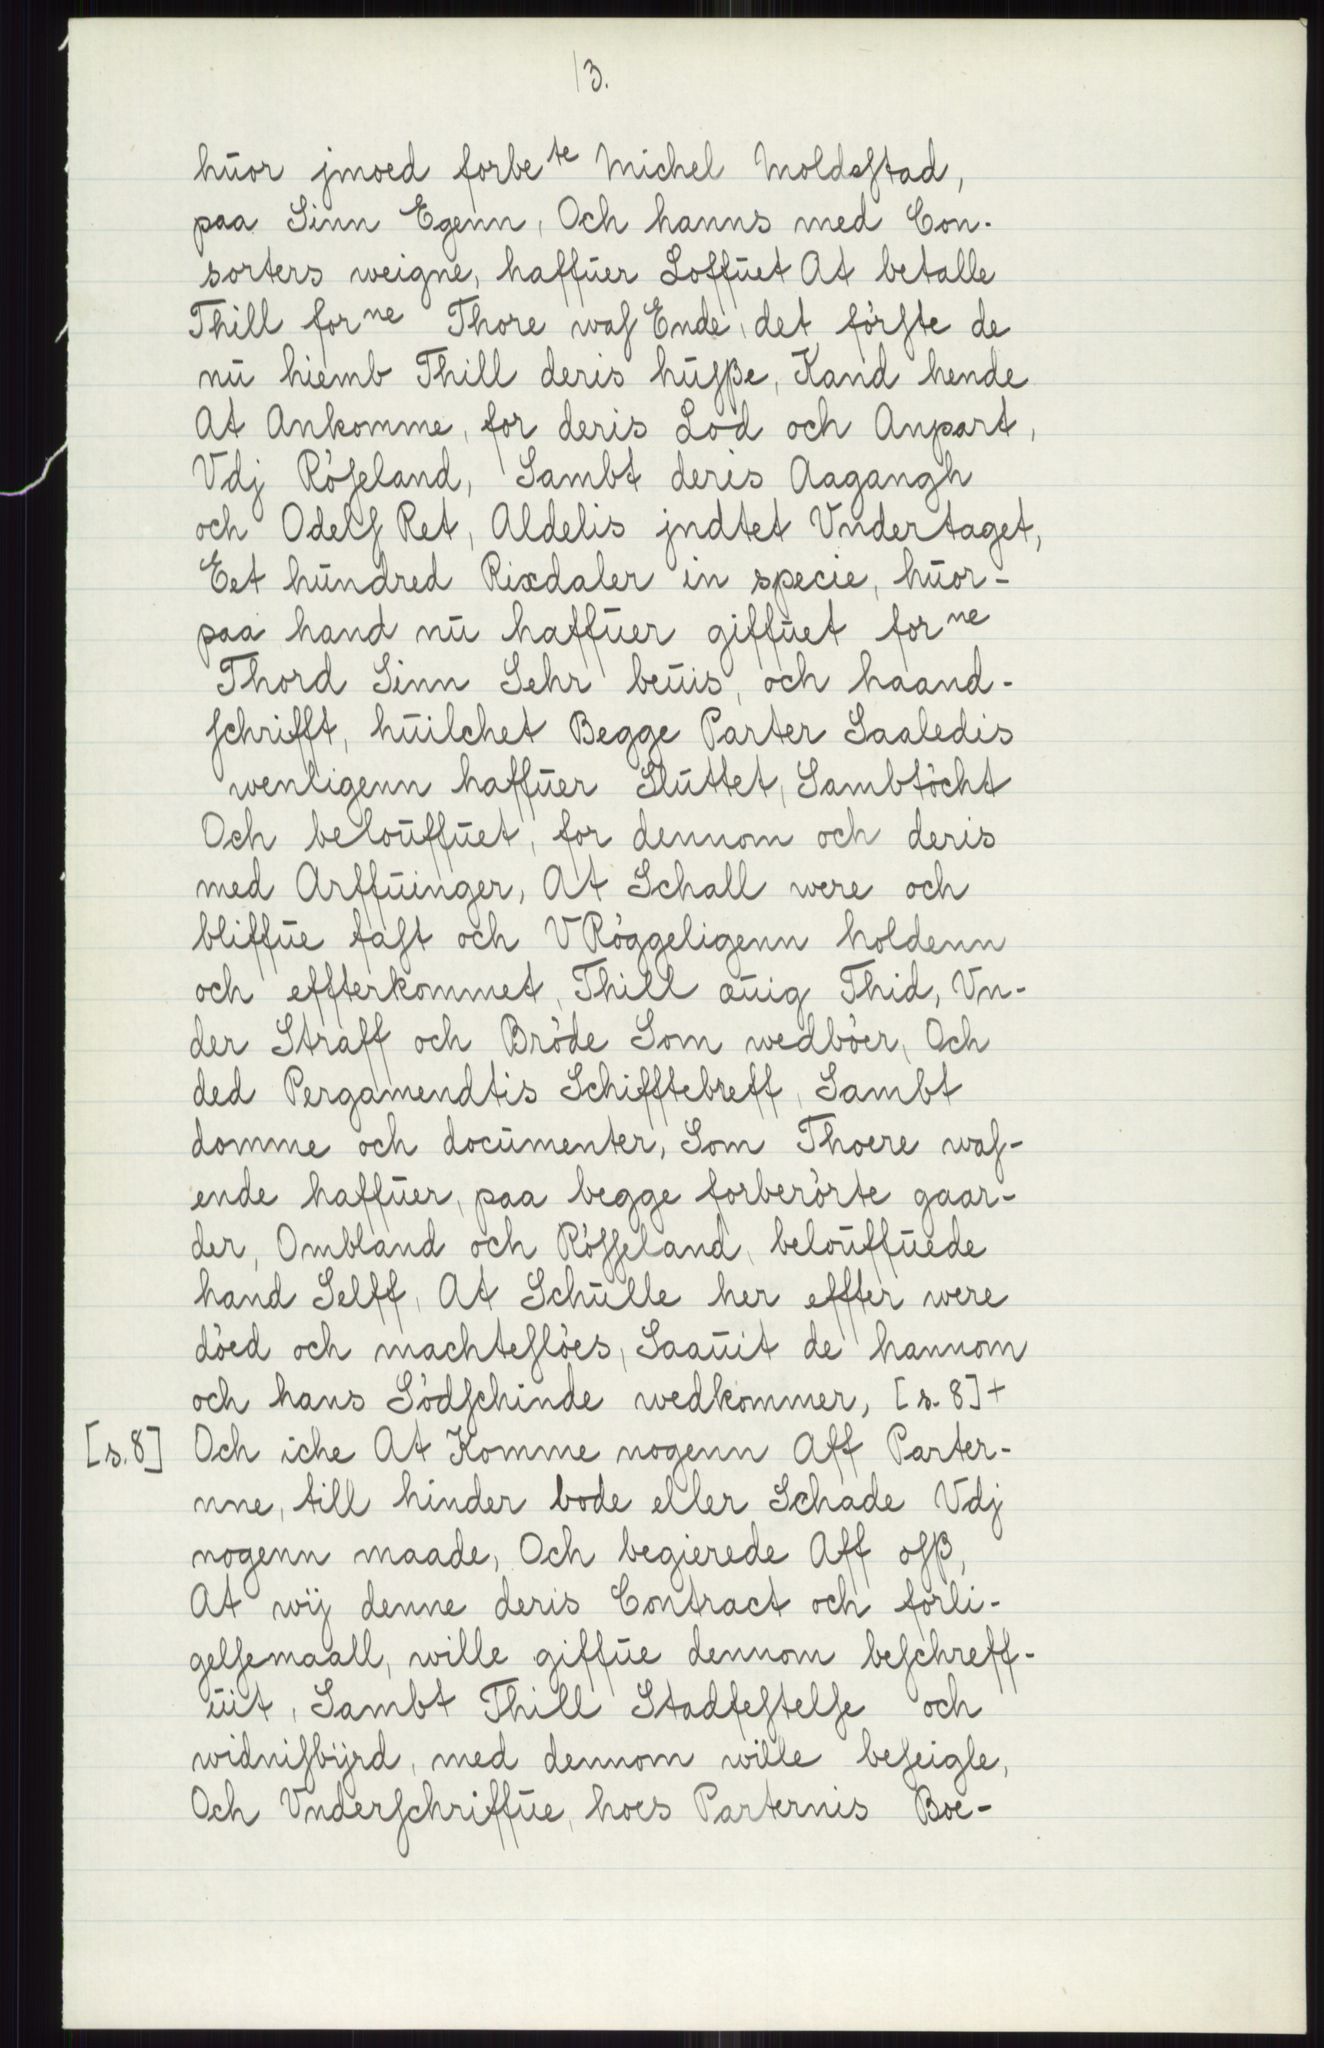 13.
huor jmoed forbe te Michel Moldestad,
paa Sinn Egenn, Och hanns med Con-
sorters weigne, haffuer Loffuet At betalle
Thill for ne Thore wasEnde, det første de
nu hiemb Thill deris husße, Kand hende
At Ankomme, for deris Lod och Anpart,
Vdj Røseland, Sambt deris Aagangh
och Odels Ret, Aldelis jndtet Vndertaget,
Eet hundred Rixdaler in specie, huor-
paa hand nu haffuer giffuet for ne
Thord Sinn Sehr beuis, och haand-
schrifft, huilchet Begge Parter Saaledis
wenligenn haffuer Sluttet, Sambtøcht
Och belouffuet, for dennom och deris
med Arffuinger, At Schall were och
bliffue fast och VRøggeligenn holdenn
och effterkommet, Thill æuig Thid, Vn-
der Straff och Brøde Som wedbøer, Och
ded Pergamendtis Schifftebreff, Sambt
domme och documenter, Som Thoere was-
ende haffuer, paa begge forberørte gaar-
der, Ombland och Røsseland, belouffuede
hand Selff, At Schulle her effter were
døed och machtesløes, Saauit de hannom
och hans Sødschinde wedkommer, [s. 8]+
[s. 8] Och iche At Komme nogenn Aff Parter-
nne, till hinder bode eller Schade Vdj
nogenn maade, Och begierede Aff osß,
At wij denne deris Contract och forli-
gelsemaall, wille giffue dennom beschreff-
uit, Sambt Thill Stadfestelse och
widnisbyrd, med dennom wille beseigle,
Och Vnderschriffue, hoes Parternis Boe-